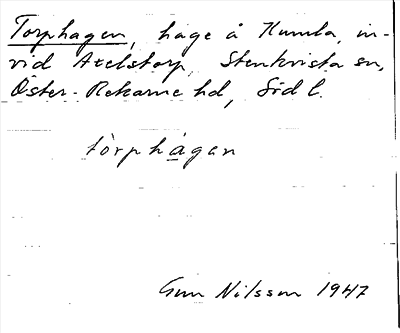 Torphagen, hage å Humla, in-
vid Axelstorp, Stenkvista sn,
Öster-Rekarne hd, Södl.
tòrphàgan
Gun Nilsson 1947